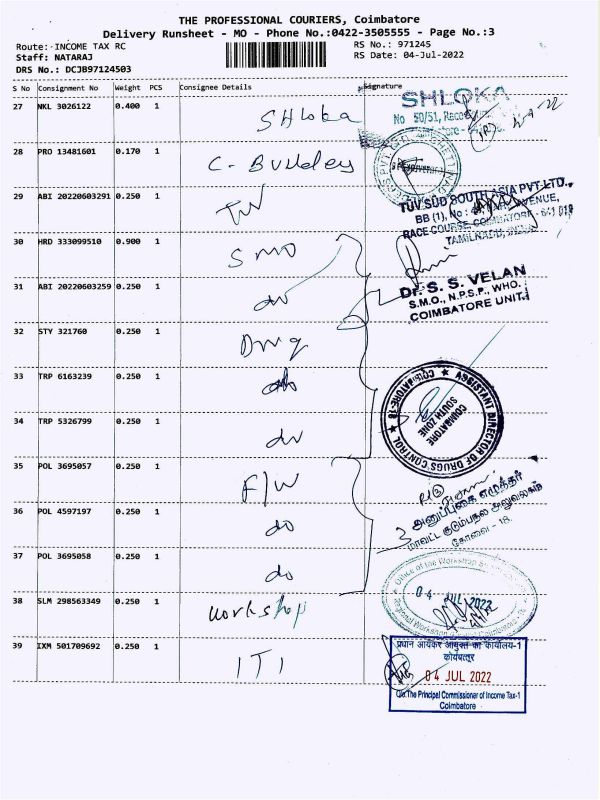 THE PROFESSIONAL COURIERS, Coimbatore
Delivery Runsheet - MO - Phone No.:0422-3505555 - Page No.:3
Route: INCOME TAX RC
RS No.: 971245
Staff: NATARAJ
RS Date: 04-Jul-2022
DRS No.: DCJB97124503
S No Consignment No Weight PCS Consignee Details Signature
27 NKL 3026122 0.400 1 SHloka
SHLOKA
No 50/51, Race
28 PRO 13481601 0.170 1 C-
29 ABI 20220603291 0.250 1 TUV
TUV SUD SOUTH ASIA PVT LTD.,
BB (1), No : AVENUE,
RACE COURSE, COIMBATORE - 641 018
TAMILNADU, INDIA
30 HRD 333099510 0.900 1 SMO
31 ABI 20220603259 0.250 1 do
Dr. S. S. VELAN
S.M.O., N.P.S.P., WHO.
COIMBATORE UNIT.
32 STY 321760 0.250 1 Drug
33 TRP 6163239 0.250 1 do
34 TRP 5326799 0.250 1 do
ASSISTANT DIRECTOR OF DRUGS CONTROL ★ COIMBATORE-18 ★
COIMBATORE
SOUTH ZONE
35 POL 3695057 0.250 1 F/W
36 POL 4597197 0.250 1 do
அனுப்புகை எழுத்தர்
மாவட்ட குடும்பநல அலுவலகம்
கோவை - 18.
37 POL 3695058 0.250 1 do
38 SLM 298563349 0.250 1 workshop
Office of the Workshop
04 JUL 2022
Regional Workshop
39 IXM 501709692 0.250 1 ITI
प्रधान आयकर आयुक्त का कार्यालय-1
कोयंबत्तूर
04 JUL 2022
O/o.The Principal Commissioner of Income Tax-1
Coimbatore